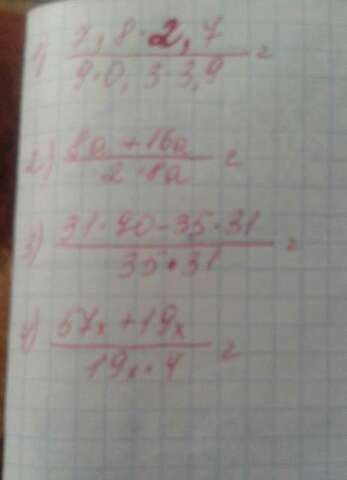 1) 7,8·2,7
9·0,3·3,9 =
2) 8a+16a
2·8a =
3) 31·90-35·31
35·31 =
4) 57x+19x
19x·4 =